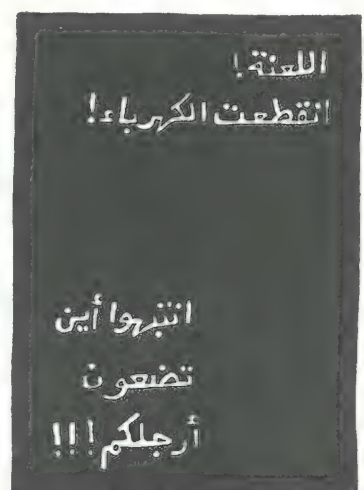 اللعنة!
انقطعت الكهرباء!
انتبهوا أين
تضعون
أرجلكم!!!